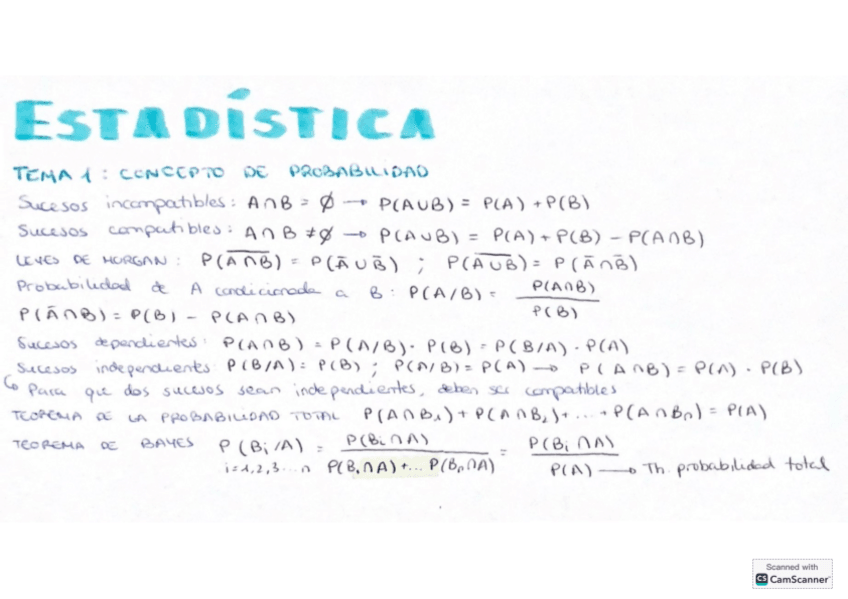 ESTADÍSTICA
TEMA 1: CONCEPTO DE PROBABILIDAD
Sucesos incompatibles: A∩B = ∅ → P(A∪B) = P(A) + P(B)
Sucesos compatibles: A∩B ≠ ∅ → P(A∪B) = P(A) + P(B) - P(A∩B)
LEYES DE MORGAN: P(A̅∩̅B̅) = P(A̅∪B̅) ; P(A̅∪̅B̅) = P(A̅∩B̅)
Probabilidad de A condicionada a B: P(A/B) = P(A∩B) / P(B)
P(A̅∩B) = P(B) - P(A∩B)
Sucesos dependientes: P(A∩B) = P(A/B) · P(B) = P(B/A) · P(A)
Sucesos independientes: P(B/A) = P(B) ; P(A/B) = P(A) → P(A∩B) = P(A) · P(B)
↳ Para que dos sucesos sean independientes, deben ser compatibles
TEOREMA DE LA PROBABILIDAD TOTAL P(A∩B₁) + P(A∩B₂) + ... + P(A∩Bₙ) = P(A)
TEOREMA DE BAYES P(Bᵢ/A) = P(Bᵢ∩A) / P(B₁∩A) + ... P(Bₙ∩A) = P(Bᵢ∩A) / P(A) → Th. probabilidad total
i=1,2,3...n
Scanned with
CS CamScanner